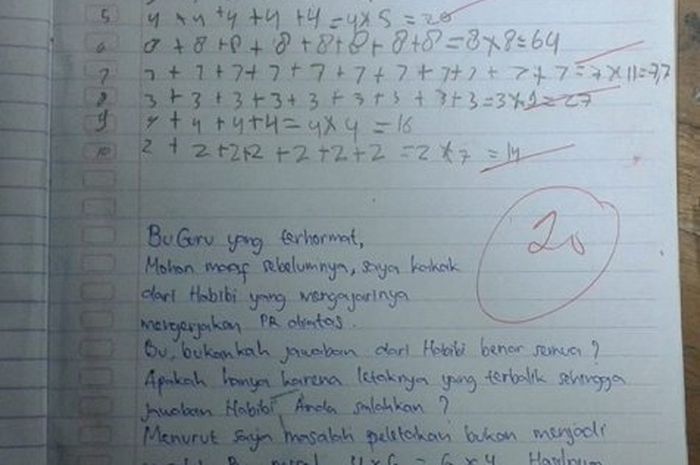 5 4 + 4 + 4 + 4 + 4 = 4 x 5 = 20
6 8 + 8 + 8 + 8 + 8 + 8 + 8 + 8 = 8 x 8 = 64
7 7 + 7 + 7 + 7 + 7 + 7 + 7 + 7 + 7 + 7 + 7 = 7 x 11 = 77
8 3 + 3 + 3 + 3 + 3 + 3 + 3 + 3 + 3 = 3 x 9 = 27
9 4 + 4 + 4 + 4 = 4 x 4 = 16
10 2 + 2 + 2 + 2 + 2 + 2 + 2 = 2 x 7 = 14
20
Bu Guru yang terhormat,
Mohon maaf sebelumnya, saya kakak
dari Habibi yang mengajarinya
mengerjakan PR diatas.
Bu, bukankah jawaban dari Habibi benar semua?
Apakah hanya karena letaknya yang terbalik sehingga
jawaban Habibi Anda salahkan?
Menurut saya masalah peletakan bukan menjadi
4 x 6 = 6 x 4